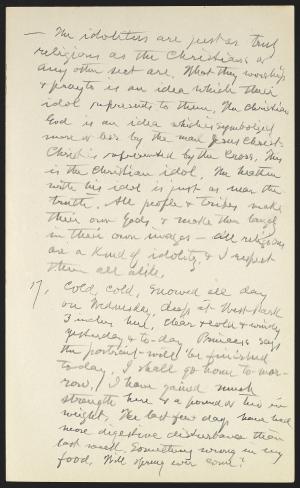 — The idolators are just as truly
religious as the Christians or
any other sect are. What they worship
& pray to is an idea which their
idol represents to them. The Christian
God is an idea which is symbolized
more or less by the man Jesus Christ—
Christ is represented by the Cross. This
is the Christian idol. The heathen
with his idol is just as near the
truth. All people & tribes make
their own Gods, & make them largely
in their own images — all religions
are a kind of idolatry, & I respect
them all alike.
17, Cold, cold, snowed all day
on Wednesday, deep at West Park
3 inches here, clear & cold & windy
yesterday & to-day. Princess says
the portrait will be finished
to-day, I shall go home to-mor-
row. I have gained much
strength here & a pound or two in
weight. The last few days have had
more digestive disturbance than
last week. Something wrong in my
food. Will spring ever come?